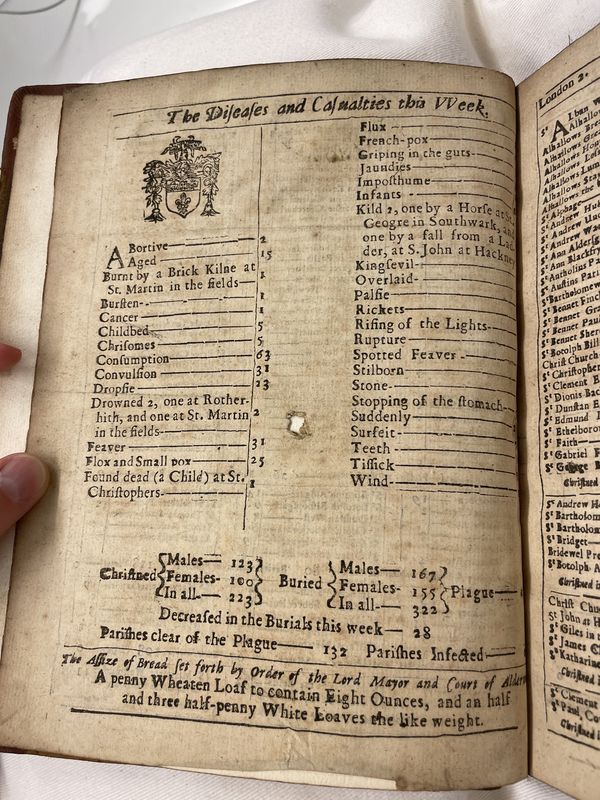 The Diſeaſes and Caſualties this VVeek.
ABortive 2
Aged 15
Burnt by a Brick Kilne at
St. Martin in the fields 1
Burſten 1
Cancer 1
Childbed 5
Chriſomes 5
Conſumption 63
Convulſion 31
Dropſie 23
Drowned 2, one at Rother-
hith, and one at St. Martin 2
in the fields
Feaver 31
Flox and Small pox 25
Found dead (a Child) at St.
Chriſtophers 1
Flux
French-pox
Griping in the guts
Jaundies
Impoſthume
Infants
Kild 2, one by a Horſe at St.
Geogre in Southwark, and
one by a fall from a Lad
der, at S. John at Hackney
Kingſevil
Overlaid
Palſie
Rickets
Riſing of the Lights
Rupture
Spotted Feaver
Stilborn
Stone
Stopping of the ſtomach
Suddenly
Surfeit
Teeth
Tiſſick
Wind
Chriſtned Males 123 Females 100 In all 223
Buried Males 167 Females 155 In all 322 Plague
Decreaſed in the Burials this week 28
Pariſhes clear of the Plague 132 Pariſhes Infected
The Aſſize of Bread ſet forth by Order of the Lord Mayor and Court of Alderm
A penny Wheaten Loaf to contain Eight Ounces, and an half
and three half-penny White Loaves the like weight.
London 2.
St ALban W
Alhallows
Alhallows
Alhallows
Alhallows
Alhallows Lum
Alhallows Stay
Alhallows the
St Alphage
St Andrew Hub
St Andrew
St Andrew War
St Ann Alderſg
St Ann Blackfry
St Antholins Pa
St Auſtins Pari
St Bartholomew
St Bennet Finch
St Bennet Gra
St Bennet Paul
St Bennet Sher
St Botolph Bill
Chriſt Church
St Chriſtopher
St Clement E
St Dionis Bac
St Dunſtan E
St Edmund
St Ethelboro
St Faith
St Gabriel F
St George
Chriſtned
St Andrew Ho
St Bartholom
St Bartholo
St Bridget
Bridewel Pre
St Botolph A
Chriſtned i
Chriſt Chu
St John at H
St Giles in
St James Cl
St Katharine
Chriſtned i
St Clement
St Paul, Co
Chriſtned i